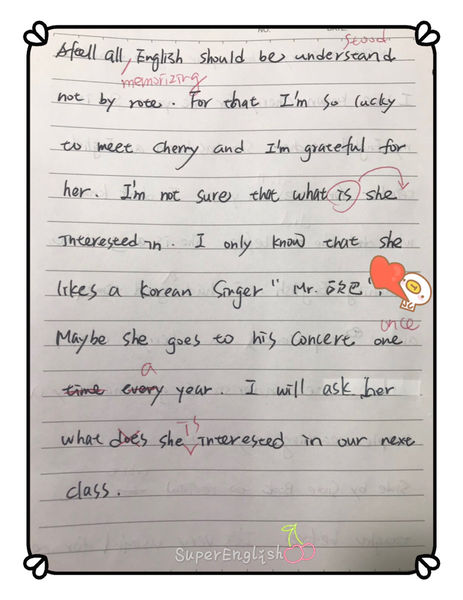 NO. DATE
stood
all, English should be understand
memorizing
not by rote. For that I'm so lucky
to meet Cherry and I'm grateful for
her. I'm not sure that what is she
interested in. I only know that she
likes a Korean Singer "Mr. 欧巴".
once
Maybe she goes to his concert one
a
time every year. I will ask her
is
what does she interested in our next
class.
SuperEnglish